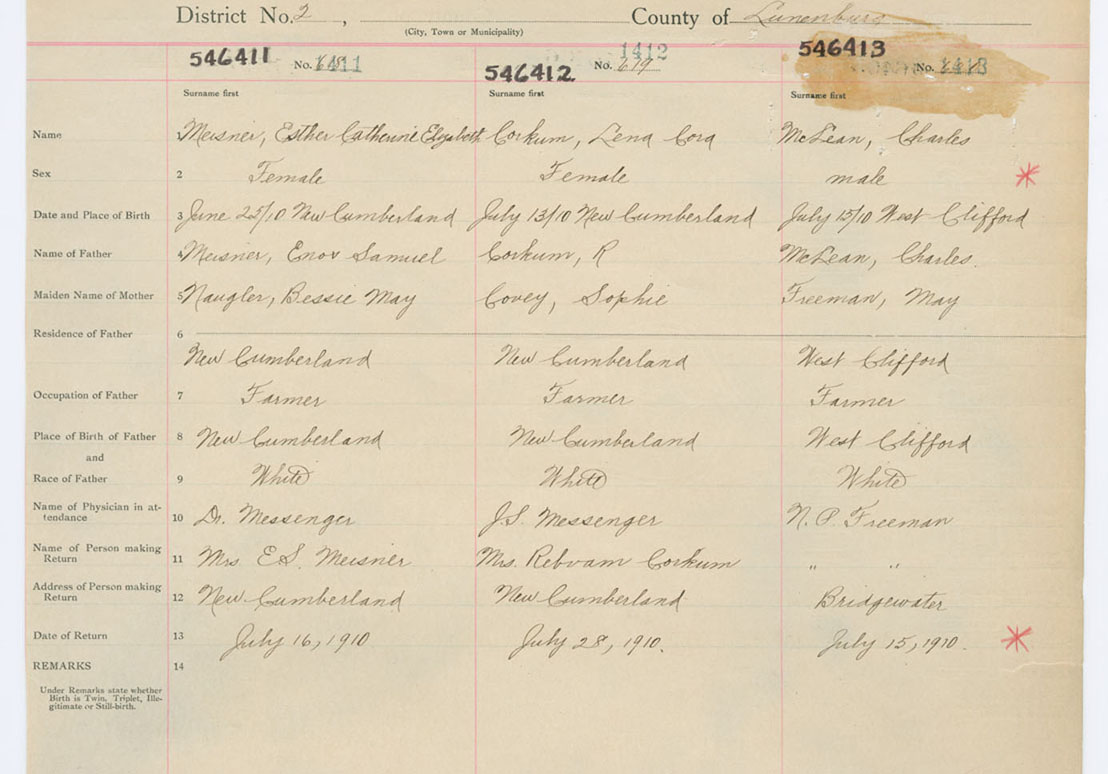 District No. 2 , County of Lunenburg
(City, Town or Municipality)
546411 No. 1411 546412 No. 619 1412 546413 No. 1413
Surname first Surname first Surname first
Name 1 Meisner, Esther Catherine Elizabeth Corkum, Lena Cora McLean, Charles
Sex 2 Female Female male *
Date and Place of Birth 3 June 25/10 New Cumberland July 13/10 New Cumberland July 15/10 West Clifford
Name of Father 4 Meisner, Enos Samuel Corkum, R McLean, Charles.
Maiden Name of Mother 5 Naugler, Bessie May Covey, Sophie Freeman, May
Residence of Father 6
New Cumberland New Cumberland West Clifford
Occupation of Father 7 Farmer Farmer Farmer
Place of Birth of Father 8 New Cumberland New Cumberland West Clifford
and
Race of Father 9 White White White
Name of Physician in at-
tendance 10 Dr. Messenger J.S. Messenger N. P. Freeman
Name of Person making
Return 11 Mrs E S. Meisner Mrs. Corkum " "
Address of Person making
Return 12 New Cumberland New Cumberland Bridgewater
Date of Return 13 July 16, 1910 July 28, 1910. July 15, 1910. *
REMARKS 14
Under Remarks state whether
Birth is Twin, Triplet, Ille-
gitimate or Still-birth.